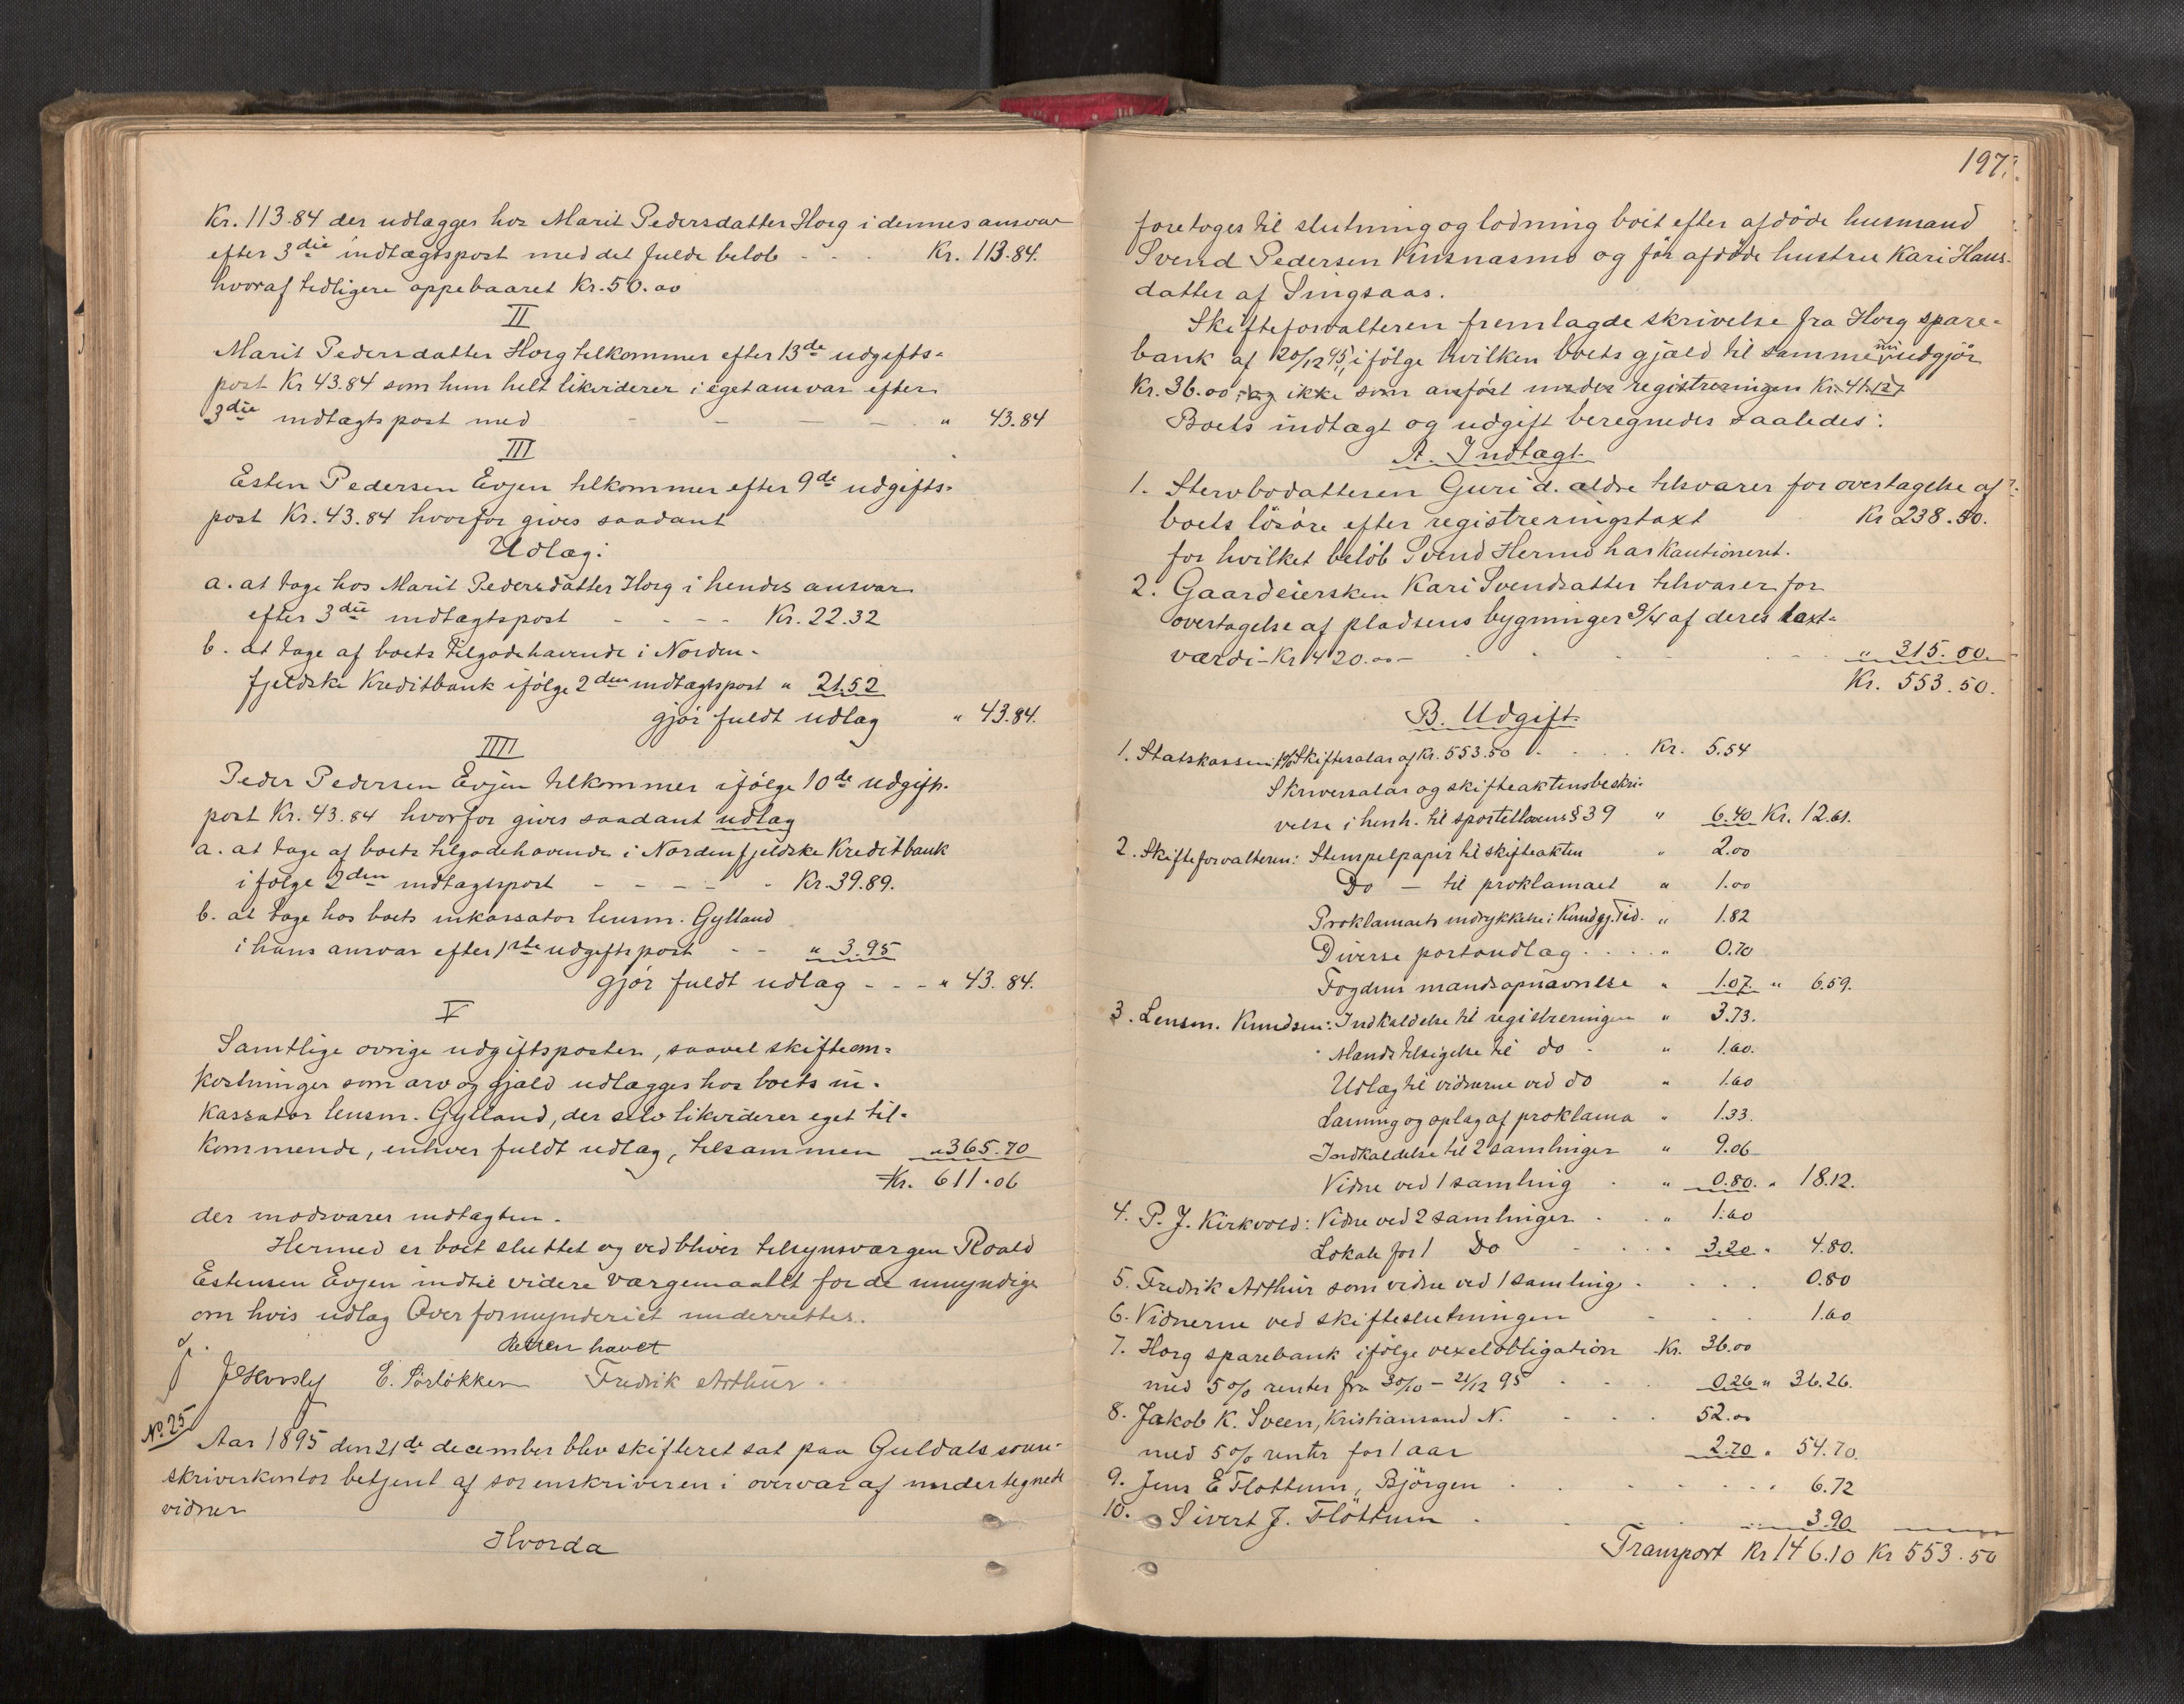 Kr. 113.84 der udlægges hos Marit Pedersdatter Horg i dennes ansvar
efter 3die indtægtspost med det fulde beløb - - - Kr. 113.84.
hvoraf tidligere oppebaaret Kr. 50.00
II
Marit Pedersdatter Horg tilkommer efter 13de udgifts-
post Kr 43.84 som hun helt likviderer i eget ansvar efter
3die indtægtspost med - - - - " 43.84
III
Esten Pedersen Evjen tilkommer efter 9de udgifts-
post Kr. 43.84 hvorfor gives saadant
Udlæg:
a. at tage hos Marit Pedersdatter Horg i hendes ansvar
efter 3die indtægtspost - - - - Kr. 22.32
b. at tage af boets tilgodehavende i Norden-
fjeldske Kreditbank ifølge 2den indtægtspost " 21.52
gjör fuldt udlæg " 43.84.
IIII
Peder Pedersen Evjen tilkommer ifölge 10de udgifts-
post Kr. 43.84 hvorfor gives saadant udlæg
a. at tage af boets tilgodehavende i Nordenfjeldske Kreditbank
ifölge 2den indtægtspost - - - - - Kr. 39.89.
b. at tage hos boets inkassator lensm. Gylland
i hans ansvar efter 1ste udgiftspost - - " 3.95
gjör fuldt udlæg - - - " 43.84.
V
Samtlige øvrige udgiftsposter, saavel skifteom-
kostninger som arv og gjæld udlægges hos boets in-
kassator lensm. Gylland, der selv likviderer eget til-
kommende, enhver fuldt udlæg, tilsammen " 365.70
Kr. 611.06
der modsvarer indtægten.
Hermed er boet sluttet og vedbliver tilsynsværgen Roald
Estensen Evjen indtil videre værgemaalet for de umyndige
om hvis udlæg Overformynderiet underrettes.
Retten hævet
E. Pörlökken Fredrik Arthur.
No. 25
Aar 1895 den 21de december blev skifteret sat paa Guldals soren-
skriverkontor betjent af sorenskriveren i overvær af undertegnede
vidner
Hvorda
197.
foretoges til slutning og lodning boet efter afdöde husmand
Svend Pedersen Kusnasmo og för afdöde hustru Kari Hans-
datter af Singsaas.
Skifteforvalteren fremlagde skrivelse fra Horg spare-
bank af 20/12 95, ifölge hvilken boets gjæld til samme nu udgjör
Kr. 36.00 og ikke som anfört under registreringen Kr. 41.12
Boets indtægt og udgift beregnedes saaledes:
A. Indtægt.
1. Stervbodatteren Guri d. ældre tilsvarer for overtagelse af
boets lösöre efter registreringstaxt Kr 238.50.
for hvilket belöb Svend Hermo har kautioneret.
2. Gaardeiersken Kari Svendsatter tilsvarer for
overtagelse af pladsens bygninger 3/4 af deres taxt-
værdi - Kr 420.00 - " 315.00
Kr. 553.50.
B. Udgift.
1. Statskassen: 1% Skiftesalær af Kr. 553.50 . . . . Kr. 5.54
Skriversalær og skifteaktens beskri-
velse i henh. til sportelloven § 39 " 6.40 Kr. 12.61.
2. Skifteforvalteren: Stempelpapir til skifteakten " 2.00
Do - til proklamaet " 1.00
Proklamaets indrykkelse i Kundgj. Tid. " 1.82
Diverse portoudlæg . . . . " 0.70
Fogdens mandsopnævnelse " 1.07. " 6.59.
3. Lensm. Knudsen: Indkaldelse til registreringen " 3.73.
Mandstilsigelse til do " 1.60.
Udlæg til vidnerne ved do " 1.60
Læsning og oplæg af proklama " 1.33.
Indkaldelse til 2 samlinger " 9.06
Vidne ved 1 samling " 0.80. " 18.12.
4. P. J. Kirkvold: Vidne ved 2 samlinger . . " 1.60
Lokale for 1 Do - - - " 3.20 " 4.80.
5. Fredrik Arthur som vidne ved 1 samling . . . . 0.80
6. Vidnerne ved skifteslutningen - . . 1.60
7. Horg sparebank ifölge vexelobligation Kr. 36.00
med 5% renter fra 30/10 - 21/12 95 . . . 0.26 " 36.26.
8. Jakob K. Sveen, Kristiansund N. . . . 52.00
med 5% rente for 1 aar 2.70 " 54.70.
9. Jens E Flottum, Björgen . . . . . . " 6.72
10. Sivert J. Flöttum . . . . . 3.90
Transport Kr 146.10 Kr 553.50